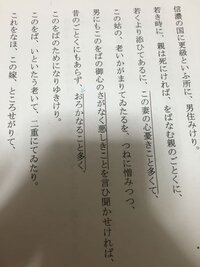 信濃の国に更級といふ所に、男住みけり。
若き時に、親は死にければ、をばなむ親のごとくに、
若くより添ひてあるに、この妻の心憂きこと多くて、
この姑の、老いかがまりてゐたるを、つねに憎みつつ、
男にもこのをばの御心のさがなく悪しきことを言ひ聞かせければ、
昔のごとくにもあらず、おろかなること多く、
このをばのためになりゆきけり。
このをば、いといたう老いて、二重にてゐたり。
これをなほ、この嫁、ところせがりて、